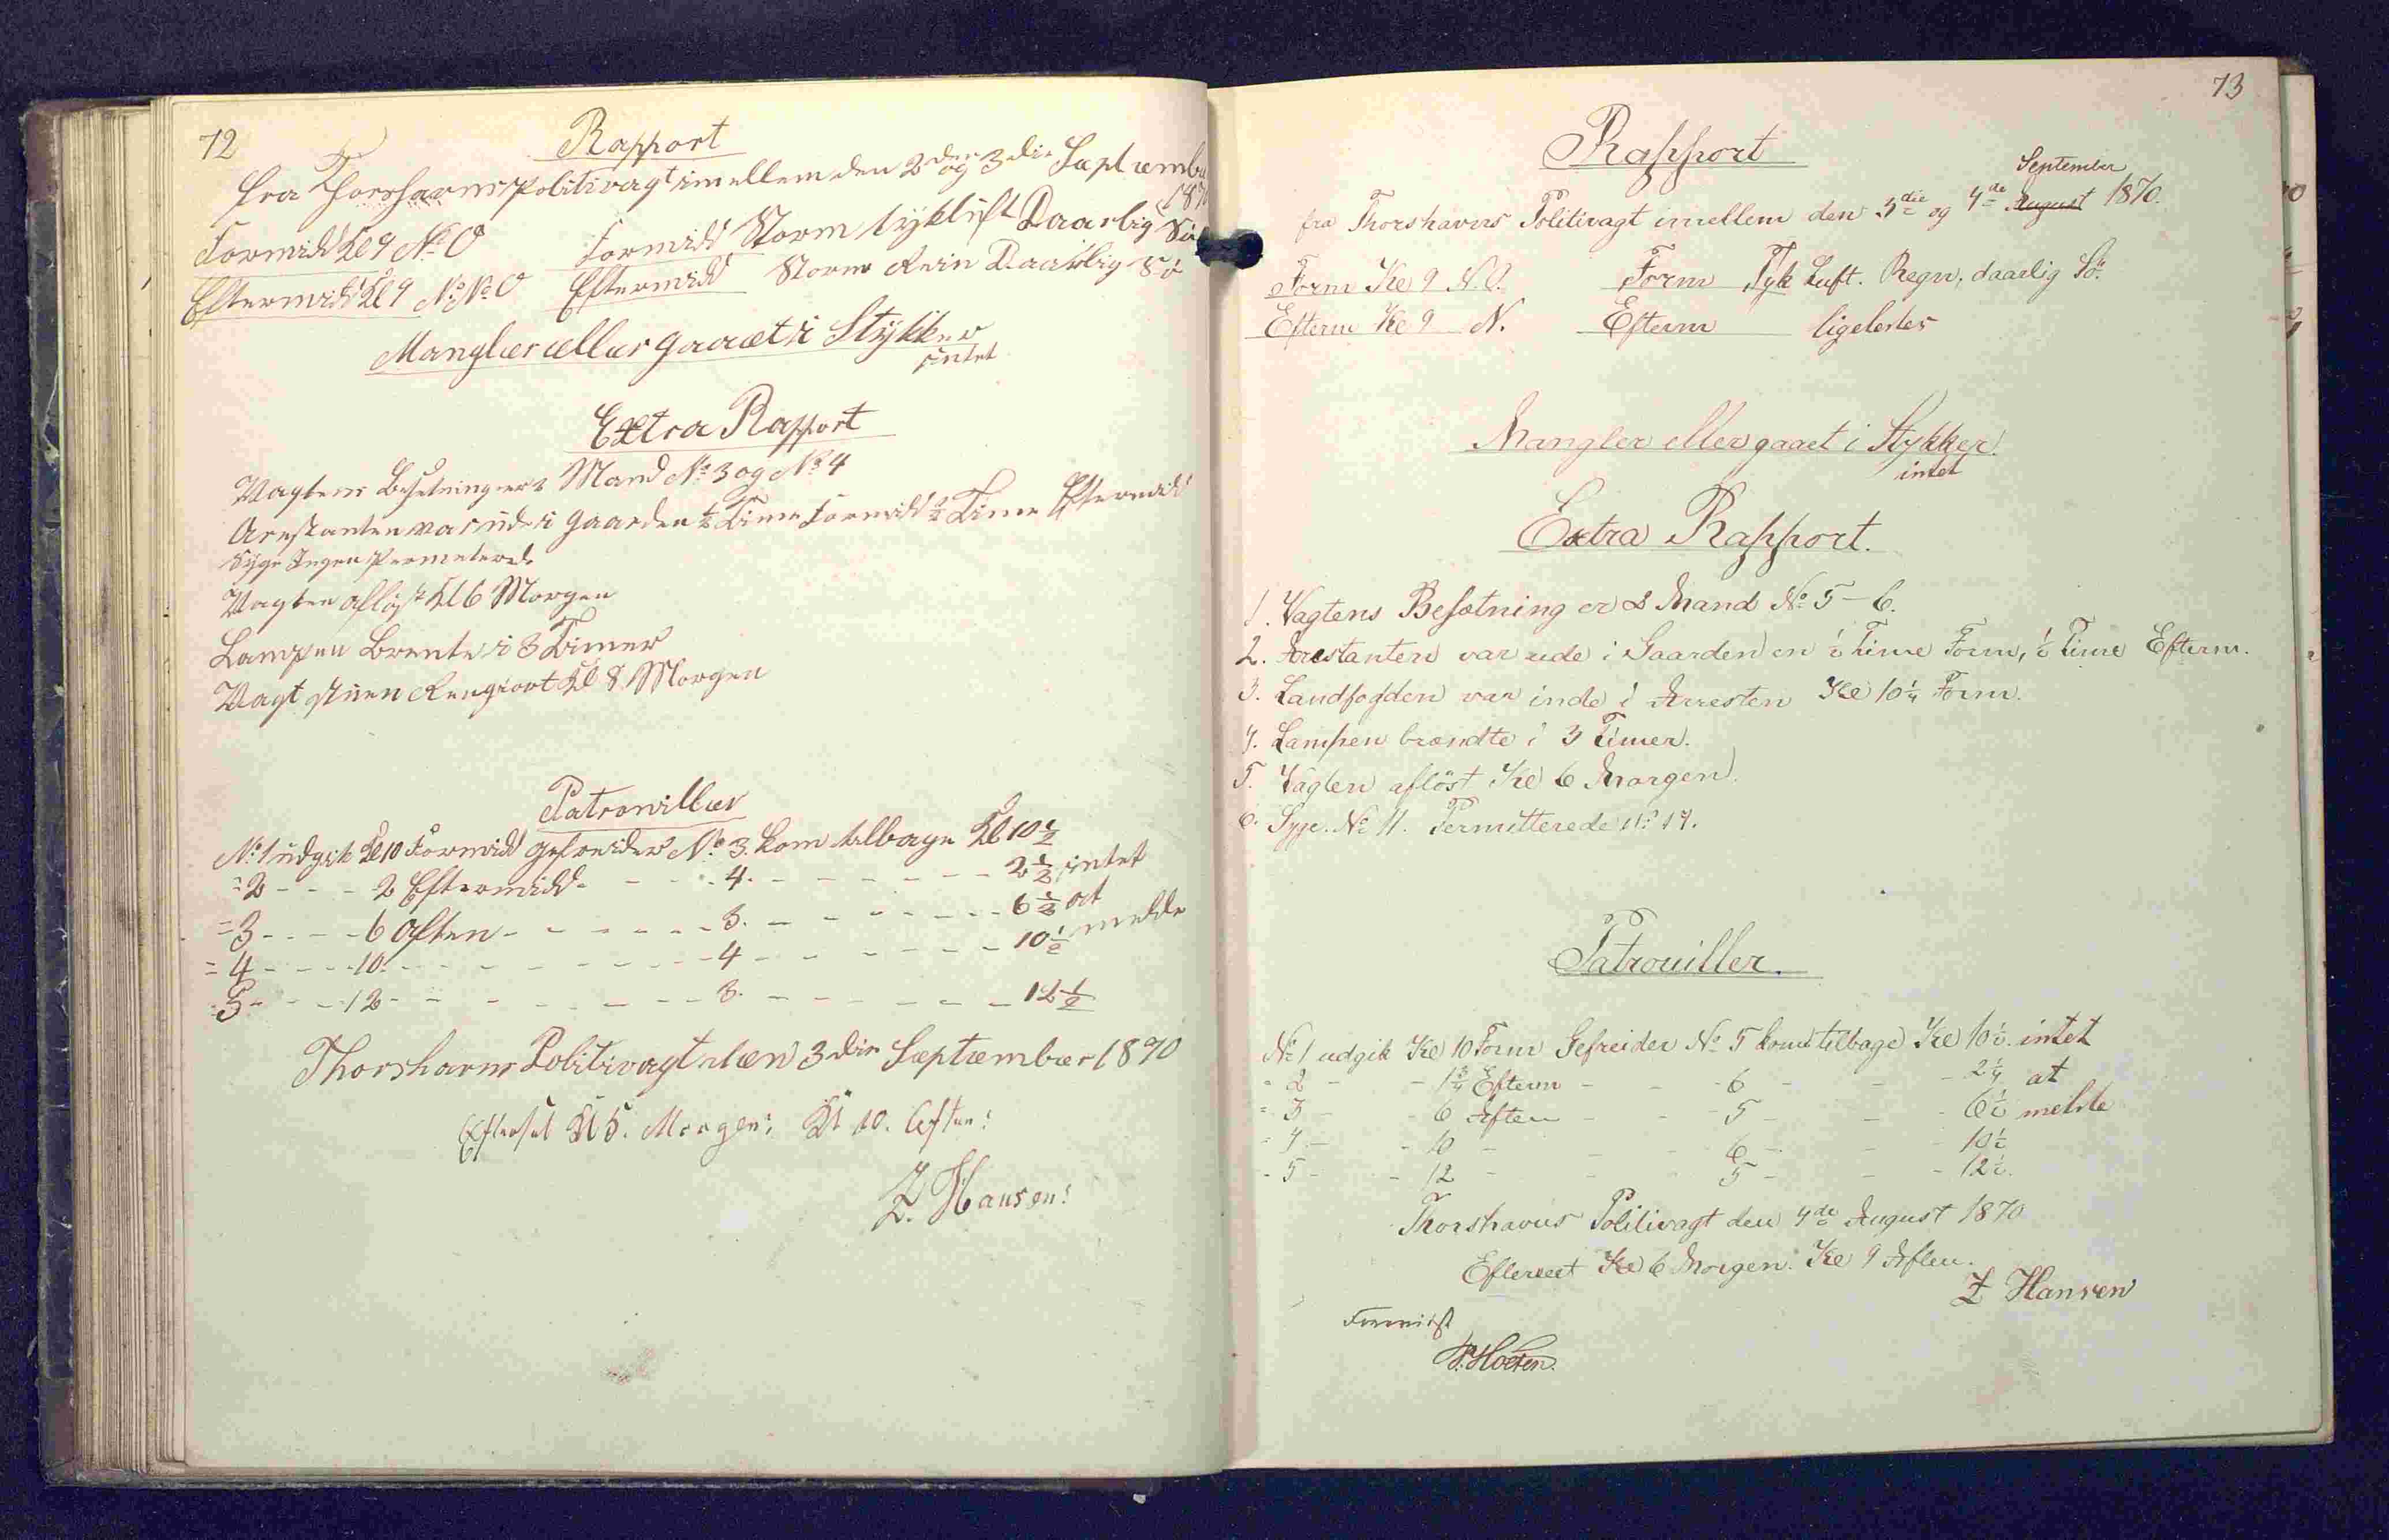 72
Rapport
fra Thorshavns Politivagt imellem den 2den og 3die September
1870
Formidd Kl 9 N.O Formidd Storm tyk luft Daarlig Sö
Eftermidd Kl 9 N.N.O Eftermidd Storm Rein Daarlig Sö
Mangler eller gaaet i Stykker
intet
Extra Rapport
Vagtens Besetning er 2 Mand No 3 og No 4
Arestanten var ude i Gaarden ½ Time Formidd ½ Time Eftermidd
Syge Ingen Permeterede
Vagten aflöst Kl 6 Morgen
Lampen Brente i 3 Timer
Vagt stuen Rengiort Kl 8 Morgen
Patrouiller
No 1 udgik Kl 10 Formidd gefreider No 3. kom tilbage Kl 10½
= 2 - - - 2 Eftermidd - - - 4. - - - - - - 2½ intet
= 3 - - - 6 Aften - - - - - 3. - - - - - - 6½ at
= 4 - - - 10 - - - - - - - 4 - - - - - - 10½ melde
= 5 - - - 12 - - - - - - - 3. - - - - - - 12½
Thorshavns Politivagt den 3die September 1870
Efterset Kl 5. Morgen; Kl 10. Aften:
Z. Hansen:
73
Rapport
September
fra Thorshavns Politivagt imellem den 3die og 4de August 1870.
Form Kl 9 N.O. Form Tyk Luft. Regn, daarlig Sö.
Efterm Kl 9 N. Efterm ligeledes
Mangler eller gaaet i Stykker.
intet
Extra Rapport.
1. Vagtens Besætning er 2 Mand No 5 - 6.
2. Arrestanten var ude i Gaarden en ½ Time Form, ½ Time Efterm.
3. Landfogden var inde i Arresten Kl 10¼ Form.
4. Lampen brændte i 3 Timer.
5. Vagten aflöst Kl 6 Morgen.
6. Syge. No 11. Permitterede No 14.
Patrouiller.
No 1 udgik Kl 10 Form Gefreider No 5 kom tilbage Kl 10½. intet
= 2 - - 1¾ Efterm - - 6 - - - 2¼ at
= 3 - - 6 Aften - - 5 - - - 6½ melde
= 4 - - 10 - - - 6 - - - 10½
- 5 - - 12 - - - 5 - - - 12½.
Thorshavns Politivagt den 4de August 1870
Efterseet Kl 6 Morgen. Kl 9 Aften.
Z Hansen
Forevist